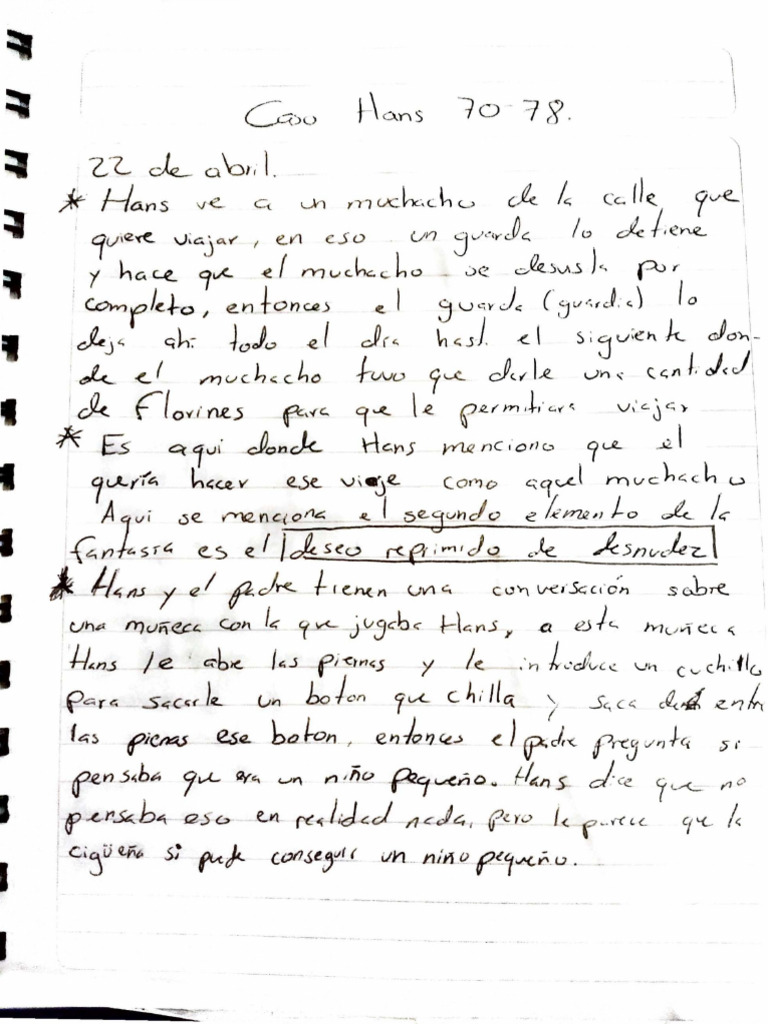 Caso Hans 70-78.
22 de abril.
* Hans ve a un muchacho de la calle que
quiere viajar, en eso un guarda lo detiene
y hace que el muchacho se desvista por
completo, entonces el guarda (guardia) lo
deja ahi todo el día hast. el siguiente don-
de el muchacho tuvo que darle una cantidad
de Florines para que le permitiara viajar
* Es aqui donde Hans menciono que el
quería hacer ese viaje como aquel muchacho
Aqui se menciona el segundo elemento de la
fantasía es el deseo reprimido de desnudez
* Hans y el padre tienen una conversación sobre
una muñeca con la que jugaba Hans, a esta muñeca
Hans le abre las piernas y le introduce un cuchillo
para sacarle un boton que chilla y saca de entre
las pienas ese boton, entonces el padre pregunta si
pensaba que era un niño pequeño. Hans dice que no
pensaba eso en realidad nada, pero le parece que la
cigüeña si pude conseguir un niño pequeño.